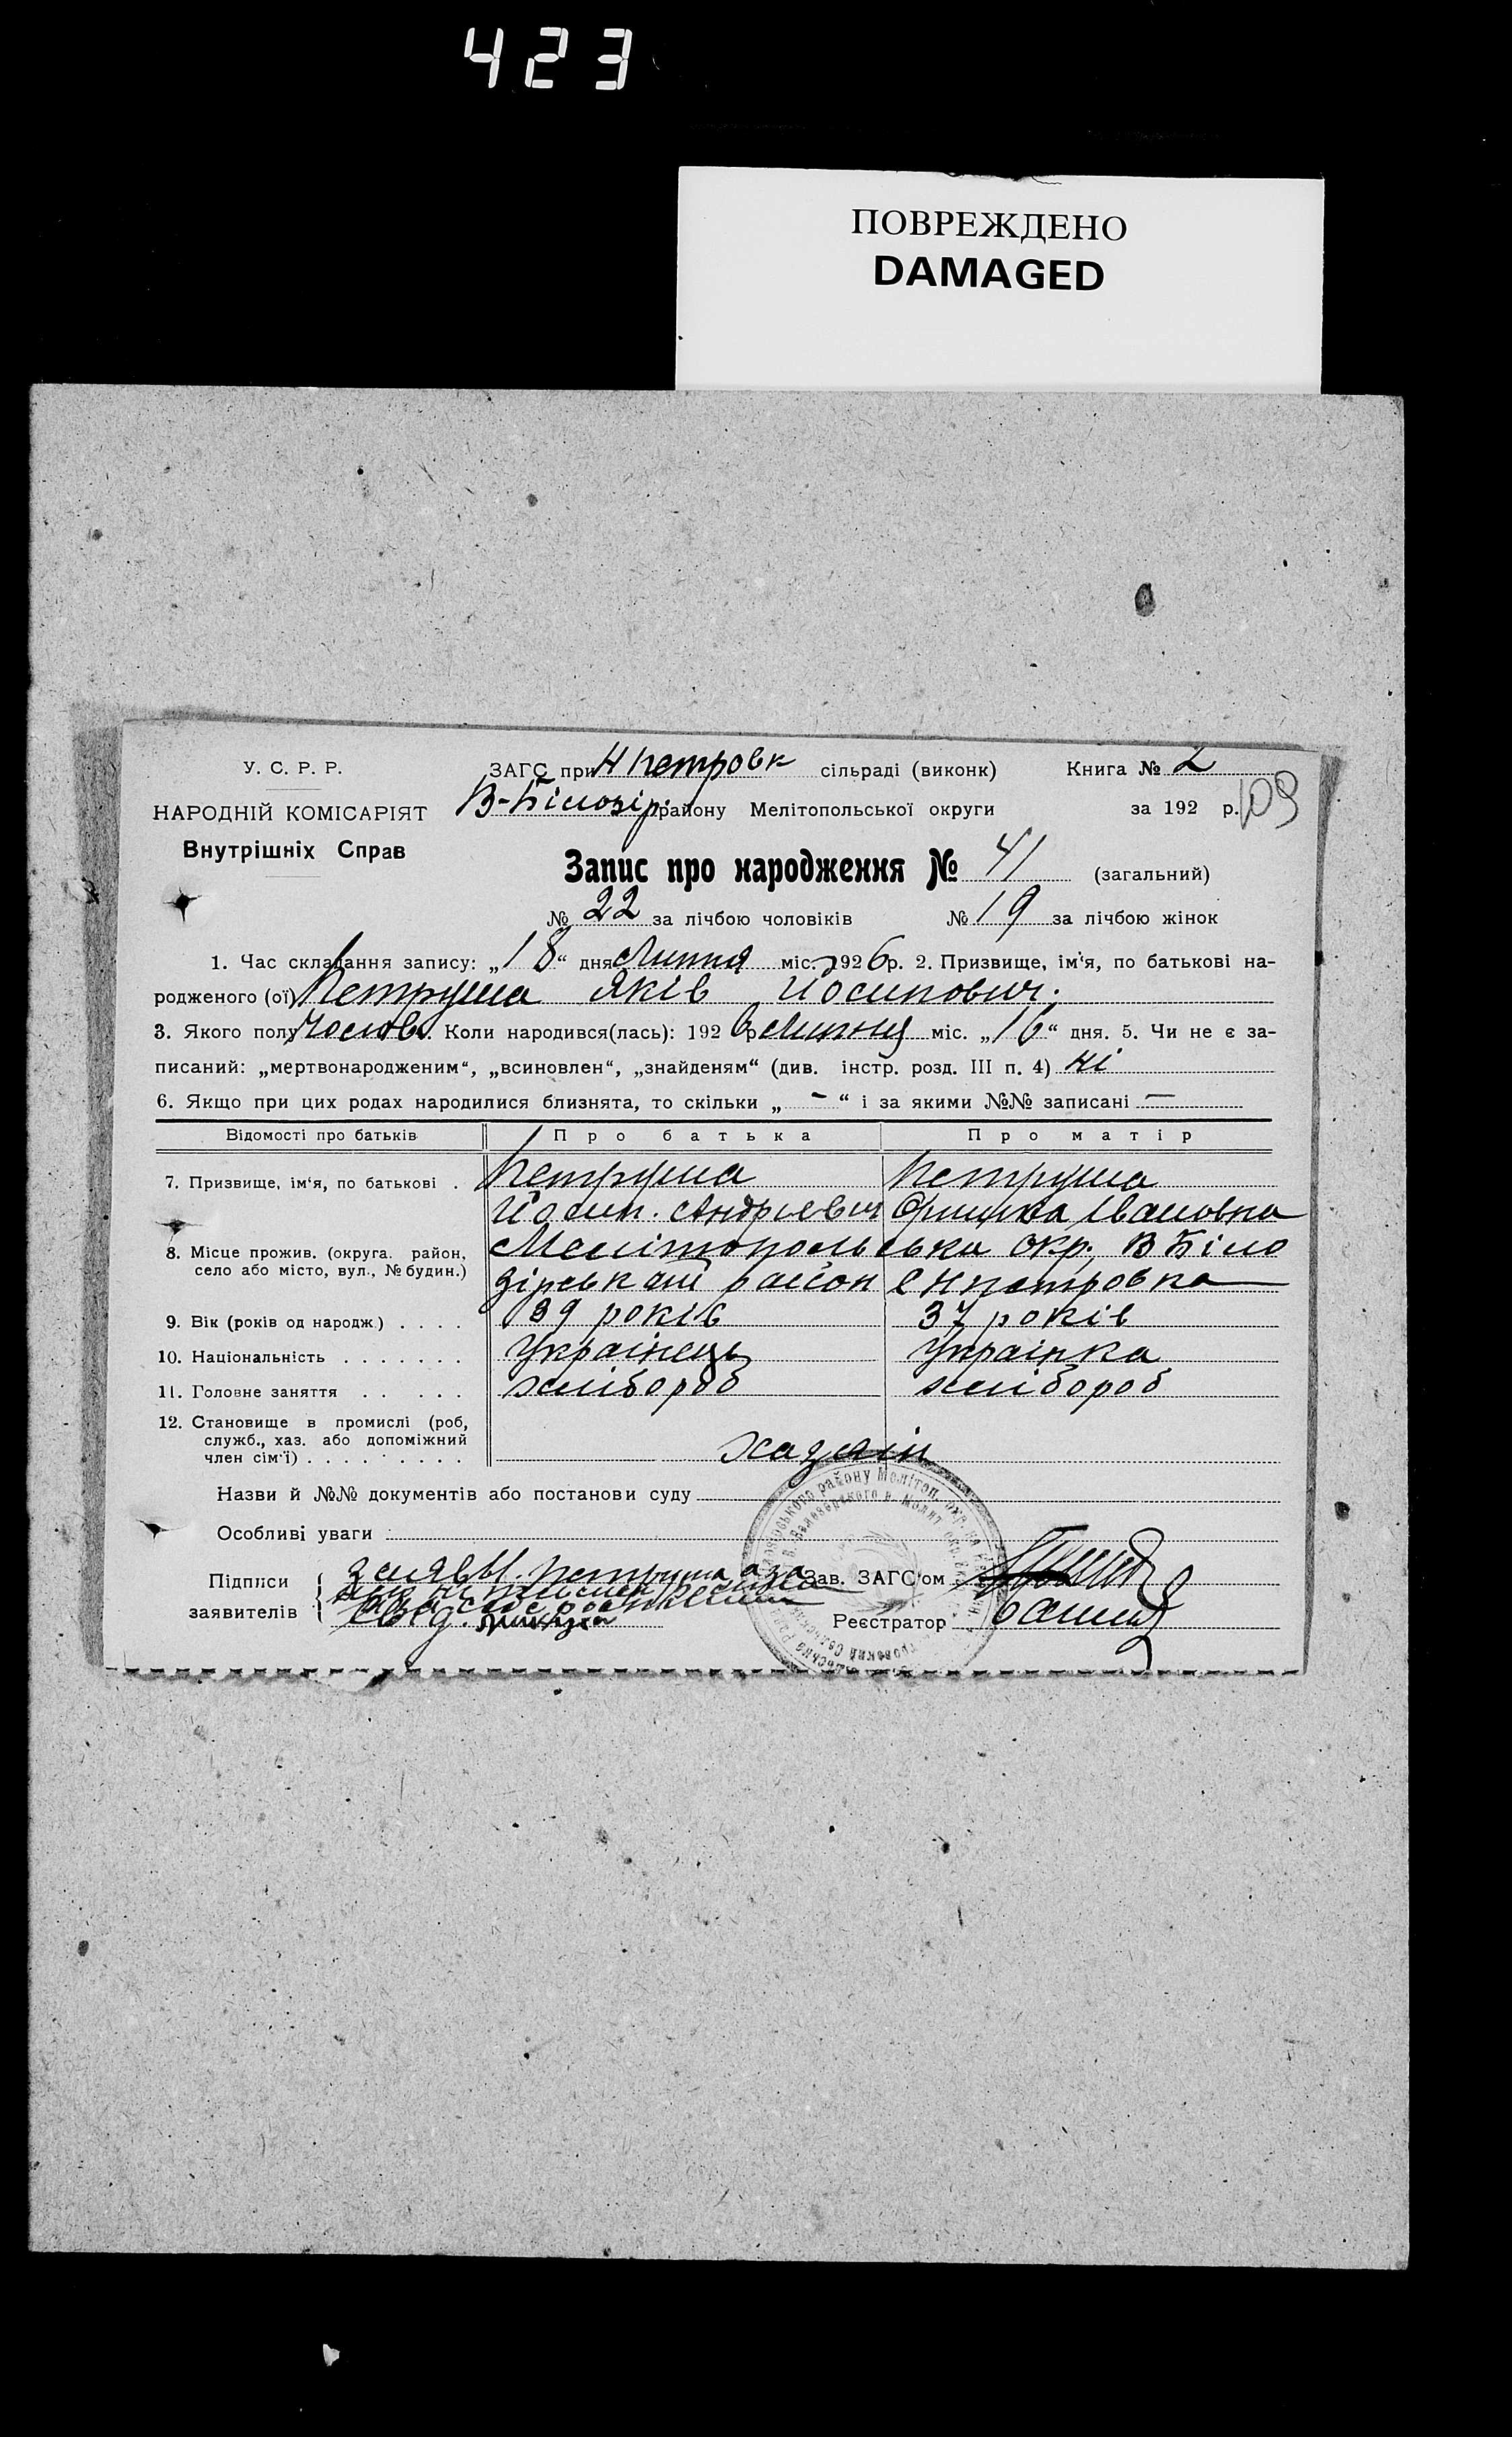 423
ПОВРЕЖДЕНО
DAMAGED
У. С. Р. Р.
ЗАГС при Н петровк сільраді (виконк)
Книга № 2
НАРОДНІЙ КОМІСАРІЯТ
В-Білозір. району Мелітопольської округи
за 192 р. 109
Внутрішніх Справ
Запис про народження № 41 (загальний)
№ 22 за лічбою чоловіків № 19 за лічбою жінок
1. Час складання запису: „18“ дня Липня міс. 1926 р. 2. Призвище, ім'я, по батькові на-
родженого (ої) Петруша Яків Йосипович.
3. Якого полу Чолов. Коли народився(лась): 1926 р Липня міс. „16“ дня. 5. Чи не є за-
писаний: „мертвонародженим“, „всиновлен“, „знайденям“ (див. інстр. розд. III п. 4) ні
6. Якщо при цих родах народилися близнята, то скільки „ - “ і за якими №№ записані —
Відомості про батьків Про батька Про матір
7. Призвище, ім‘я, по батькові . Петруша Петруша
Йосип. Андрієвич Оришка Івановна
8. Місце прожив. (округа. район, Мелітопольська окр., В Біло
село або місто, вул., № будин.) зірський район с Нпетровка
9. Вік (років од народж.) . . . . 39 років 37 років
10. Національність . . . . . . . Українець Українка
11. Головне заняття . . . . . . хлібороб хлібороб
12. Становище в промислі (роб,
служб., хаз. або допоміжний
член сім'ї) . . . . . . . . . хазяїн
Назви й №№ документів або постанови суду
Особливі уваги
Підписи
заявителів
Петруша
Зав. ЗАГС'ом
Реєстратор